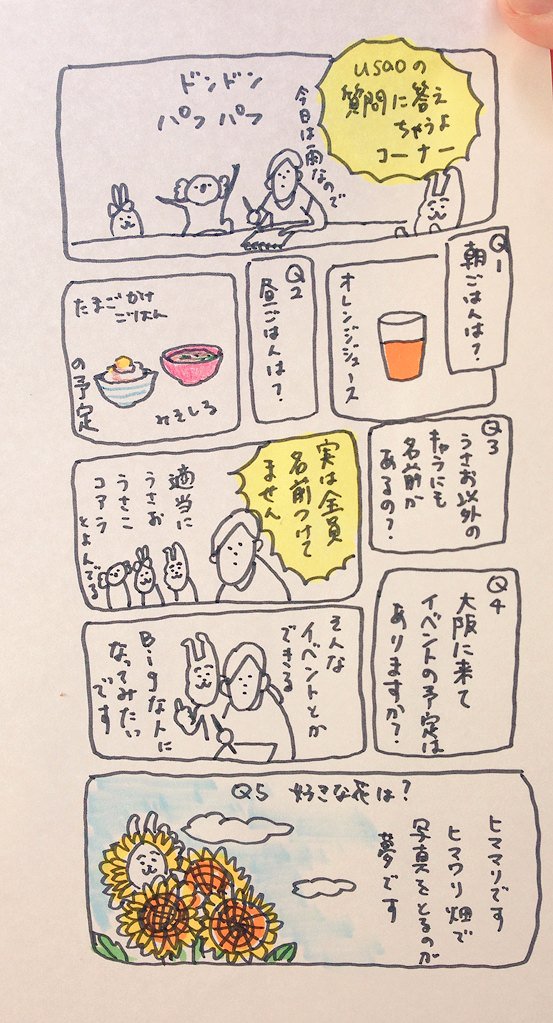 usaoの
質問に答え
ちゃうよ
コーナー
今日は雨なので
ドンドン
パフパフ
Q1
朝ごはんは?
オレンジジュース
Q2
昼ごはんは?
たまごかけ
ごはん
みそしる
の予定
Q3
うさお以外の
キャラにも
名前が
あるの?
実は全員
名前つけて
ません
適当に
うさお
うさこ
コアラ
とよんでる
Q4
大阪に来て
イベントの予定は
ありますか?
そんな
イベントとか
できる
Bigな人に
なってみたい
です
Q5 好きな花は?
ヒマワリです
ヒマワリ畑で
写真をとるのが
夢です